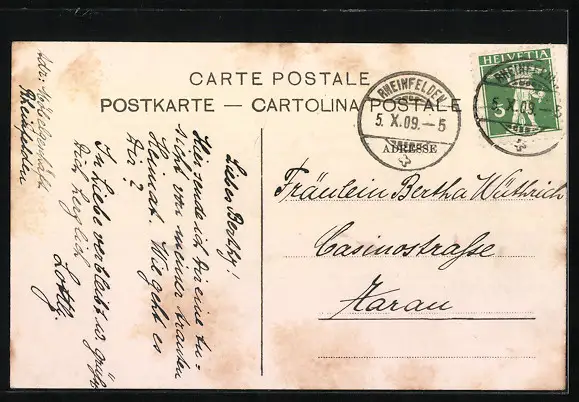 CARTE POSTALE
POSTKARTE — CARTOLINA POSTALE
ADRESSE
HELVETIA
5
RHEINFELDEN
5. X. 09. – 5
RHEINFELDEN
5. X. 09. – 5
Fräulein Bertha Wüthrich
Casinostraße
Aarau
Liebes Berthy!
Hier sende ich Dir eine An-
sicht von meiner trauten
Heimat. Wie geht es
Dir?
In Liebe verbleibt u. grüßt
Dich herzlich
Rheinfelden